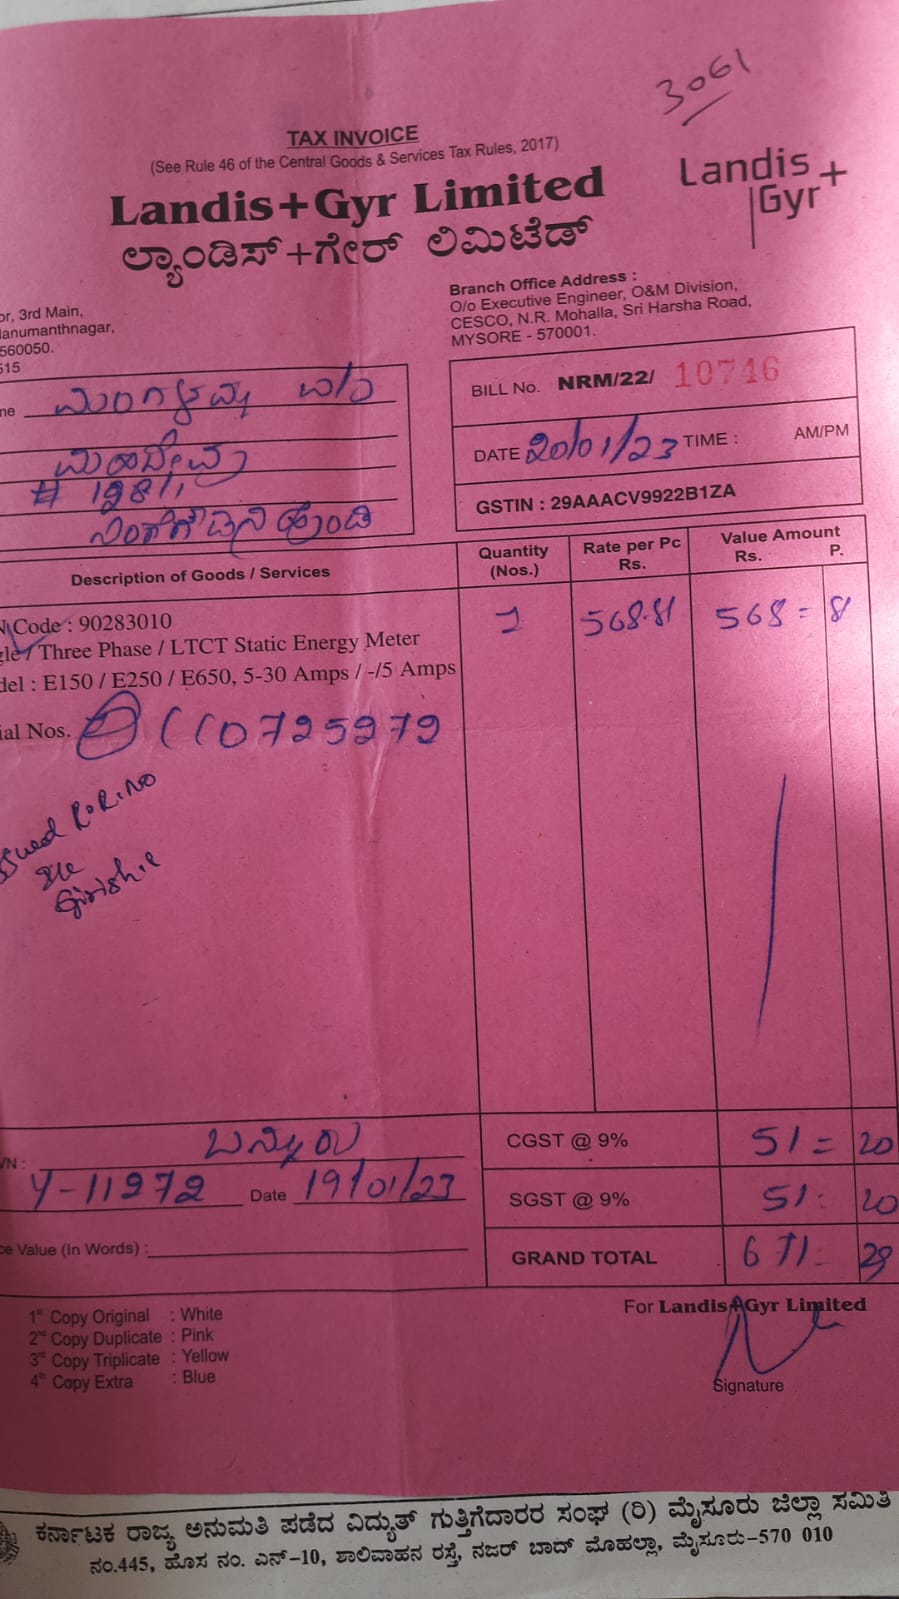 3061
TAX INVOICE
(See Rule 46 of the Central Goods & Services Tax Rules, 2017)
Landis+Gyr Limited
ಲ್ಯಾಂಡಿಸ್+ಗೇರ್ ಲಿಮಿಟೆಡ್
Landis
Gyr+
or, 3rd Main,
anumanthnagar,
560050.
515
Branch Office Address :
O/o Executive Engineer, O&M Division,
CESCO, N.R. Mohalla, Sri Harsha Road,
MYSORE - 570001.
me ಮಂಗಳಮ್ಮ
ಮಹದೇವಪ್ಪ
# 198/1,
BILL No. NRM/22/ 10746
DATE 20/01/23 TIME : AM/PM
GSTIN : 29AAACV9922B1ZA
Description of Goods / Services
Quantity (Nos.)
Rate per Pc Rs.
Value Amount Rs. P.
N Code : 90283010
gle / Three Phase / LTCT Static Energy Meter
del : E150 / E250 / E650, 5-30 Amps / -/5 Amps
1 568.81 568=81
ial Nos. 0725272
ssued R.R.No
Girish
ಬನ್ನೂರು
VN :
Y-11272 Date 19/01/23
ce Value (In Words) :
CGST @ 9% 51=20
SGST @ 9% 51=20
GRAND TOTAL 671=29
1st Copy Original : White
2nd Copy Duplicate : Pink
3rd Copy Triplicate : Yellow
4th Copy Extra : Blue
For Landis+Gyr Limited
Signature
ಕರ್ನಾಟಕ ರಾಜ್ಯ ಅನುಮತಿ ಪಡೆದ ವಿದ್ಯುತ್ ಗುತ್ತಿಗೆದಾರರ ಸಂಘ (ರಿ) ಮೈಸೂರು ಜಿಲ್ಲಾ ಸಮಿತಿ
ನಂ.445, ಹೊಸ ನಂ. ಎನ್-10, ಶಾಲಿವಾಹನ ರಸ್ತೆ, ನಜರ್ ಬಾದ್ ಮೊಹಲ್ಲಾ, ಮೈಸೂರು-570 010